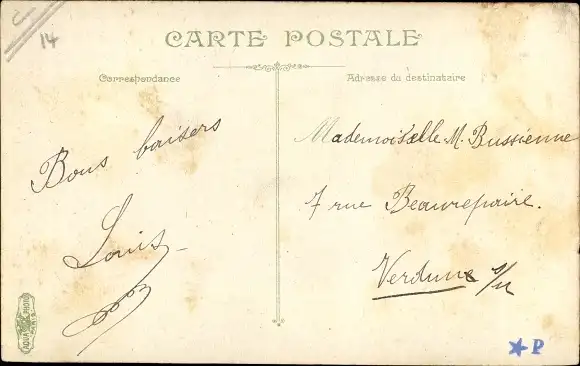 C
14
CARTE POSTALE
Correspondance
Adresse du destinataire
Bons baisers
Louis
Mademoiselle M. Bussienne
7 rue Beaurepaire.
Verdun s/m
AQUA PHOTO
PARIS
P